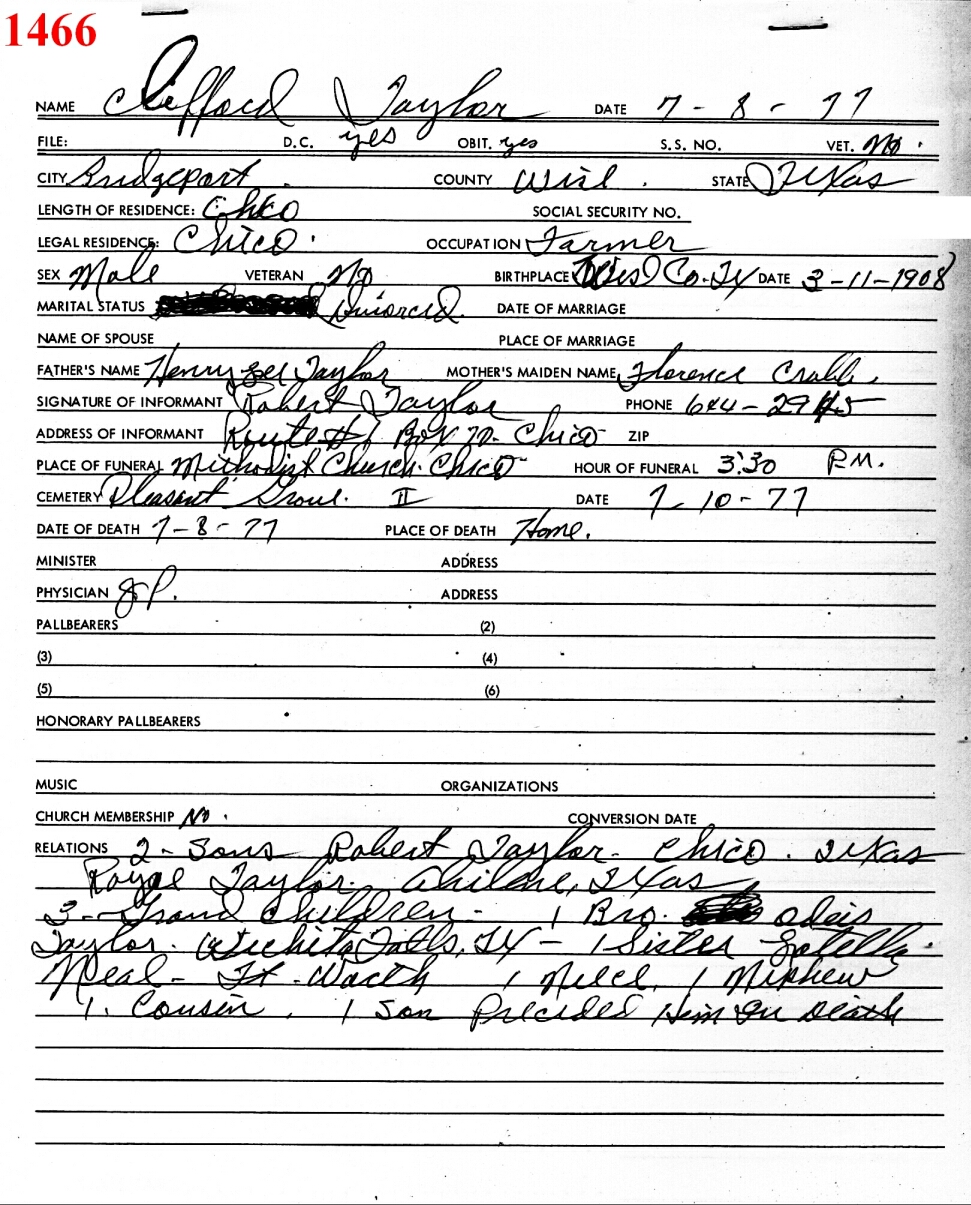 1466
NAME Clifford J Taylor DATE 7-8-77
FILE: D.C. yes OBIT. yes S.S. NO. VET. No.
CITY Bridgeport. COUNTY Wise. STATE Texas
LENGTH OF RESIDENCE: Chico SOCIAL SECURITY NO.
LEGAL RESIDENCE: Chico. OCCUPATION Farmer
SEX Male VETERAN No BIRTHPLACE Wise Co. Tx DATE 3-11-1908
MARITAL STATUS Divorced. DATE OF MARRIAGE
NAME OF SPOUSE PLACE OF MARRIAGE
FATHER'S NAME Henry Lee Taylor MOTHER'S MAIDEN NAME Florence
SIGNATURE OF INFORMANT Robert Taylor PHONE 644-29
ADDRESS OF INFORMANT Route #1 Box 70- Chico ZIP
PLACE OF FUNERAL Methodist Church. Chico HOUR OF FUNERAL 3:30 P.M.
CEMETERY Pleasant Grove. II DATE 7-10-77
DATE OF DEATH 7-8-77 PLACE OF DEATH Home.
MINISTER ADDRESS
PHYSICIAN J.P. ADDRESS
PALLBEARERS (2)
(3) (4)
(5) (6)
HONORARY PALLBEARERS
MUSIC ORGANIZATIONS
CHURCH MEMBERSHIP No. CONVERSION DATE
RELATIONS 2-Sons Robert Taylor- Chico. Texas
Taylor. Abilene, Texas
3-Grand Children- 1 Bro. Odeis
Taylor. Wichita Falls, TX- 1 Sister
Neal- Ft. Worth 1 Neice, 1 Nephew
1. Cousin. 1 Son Preceded Him In Death